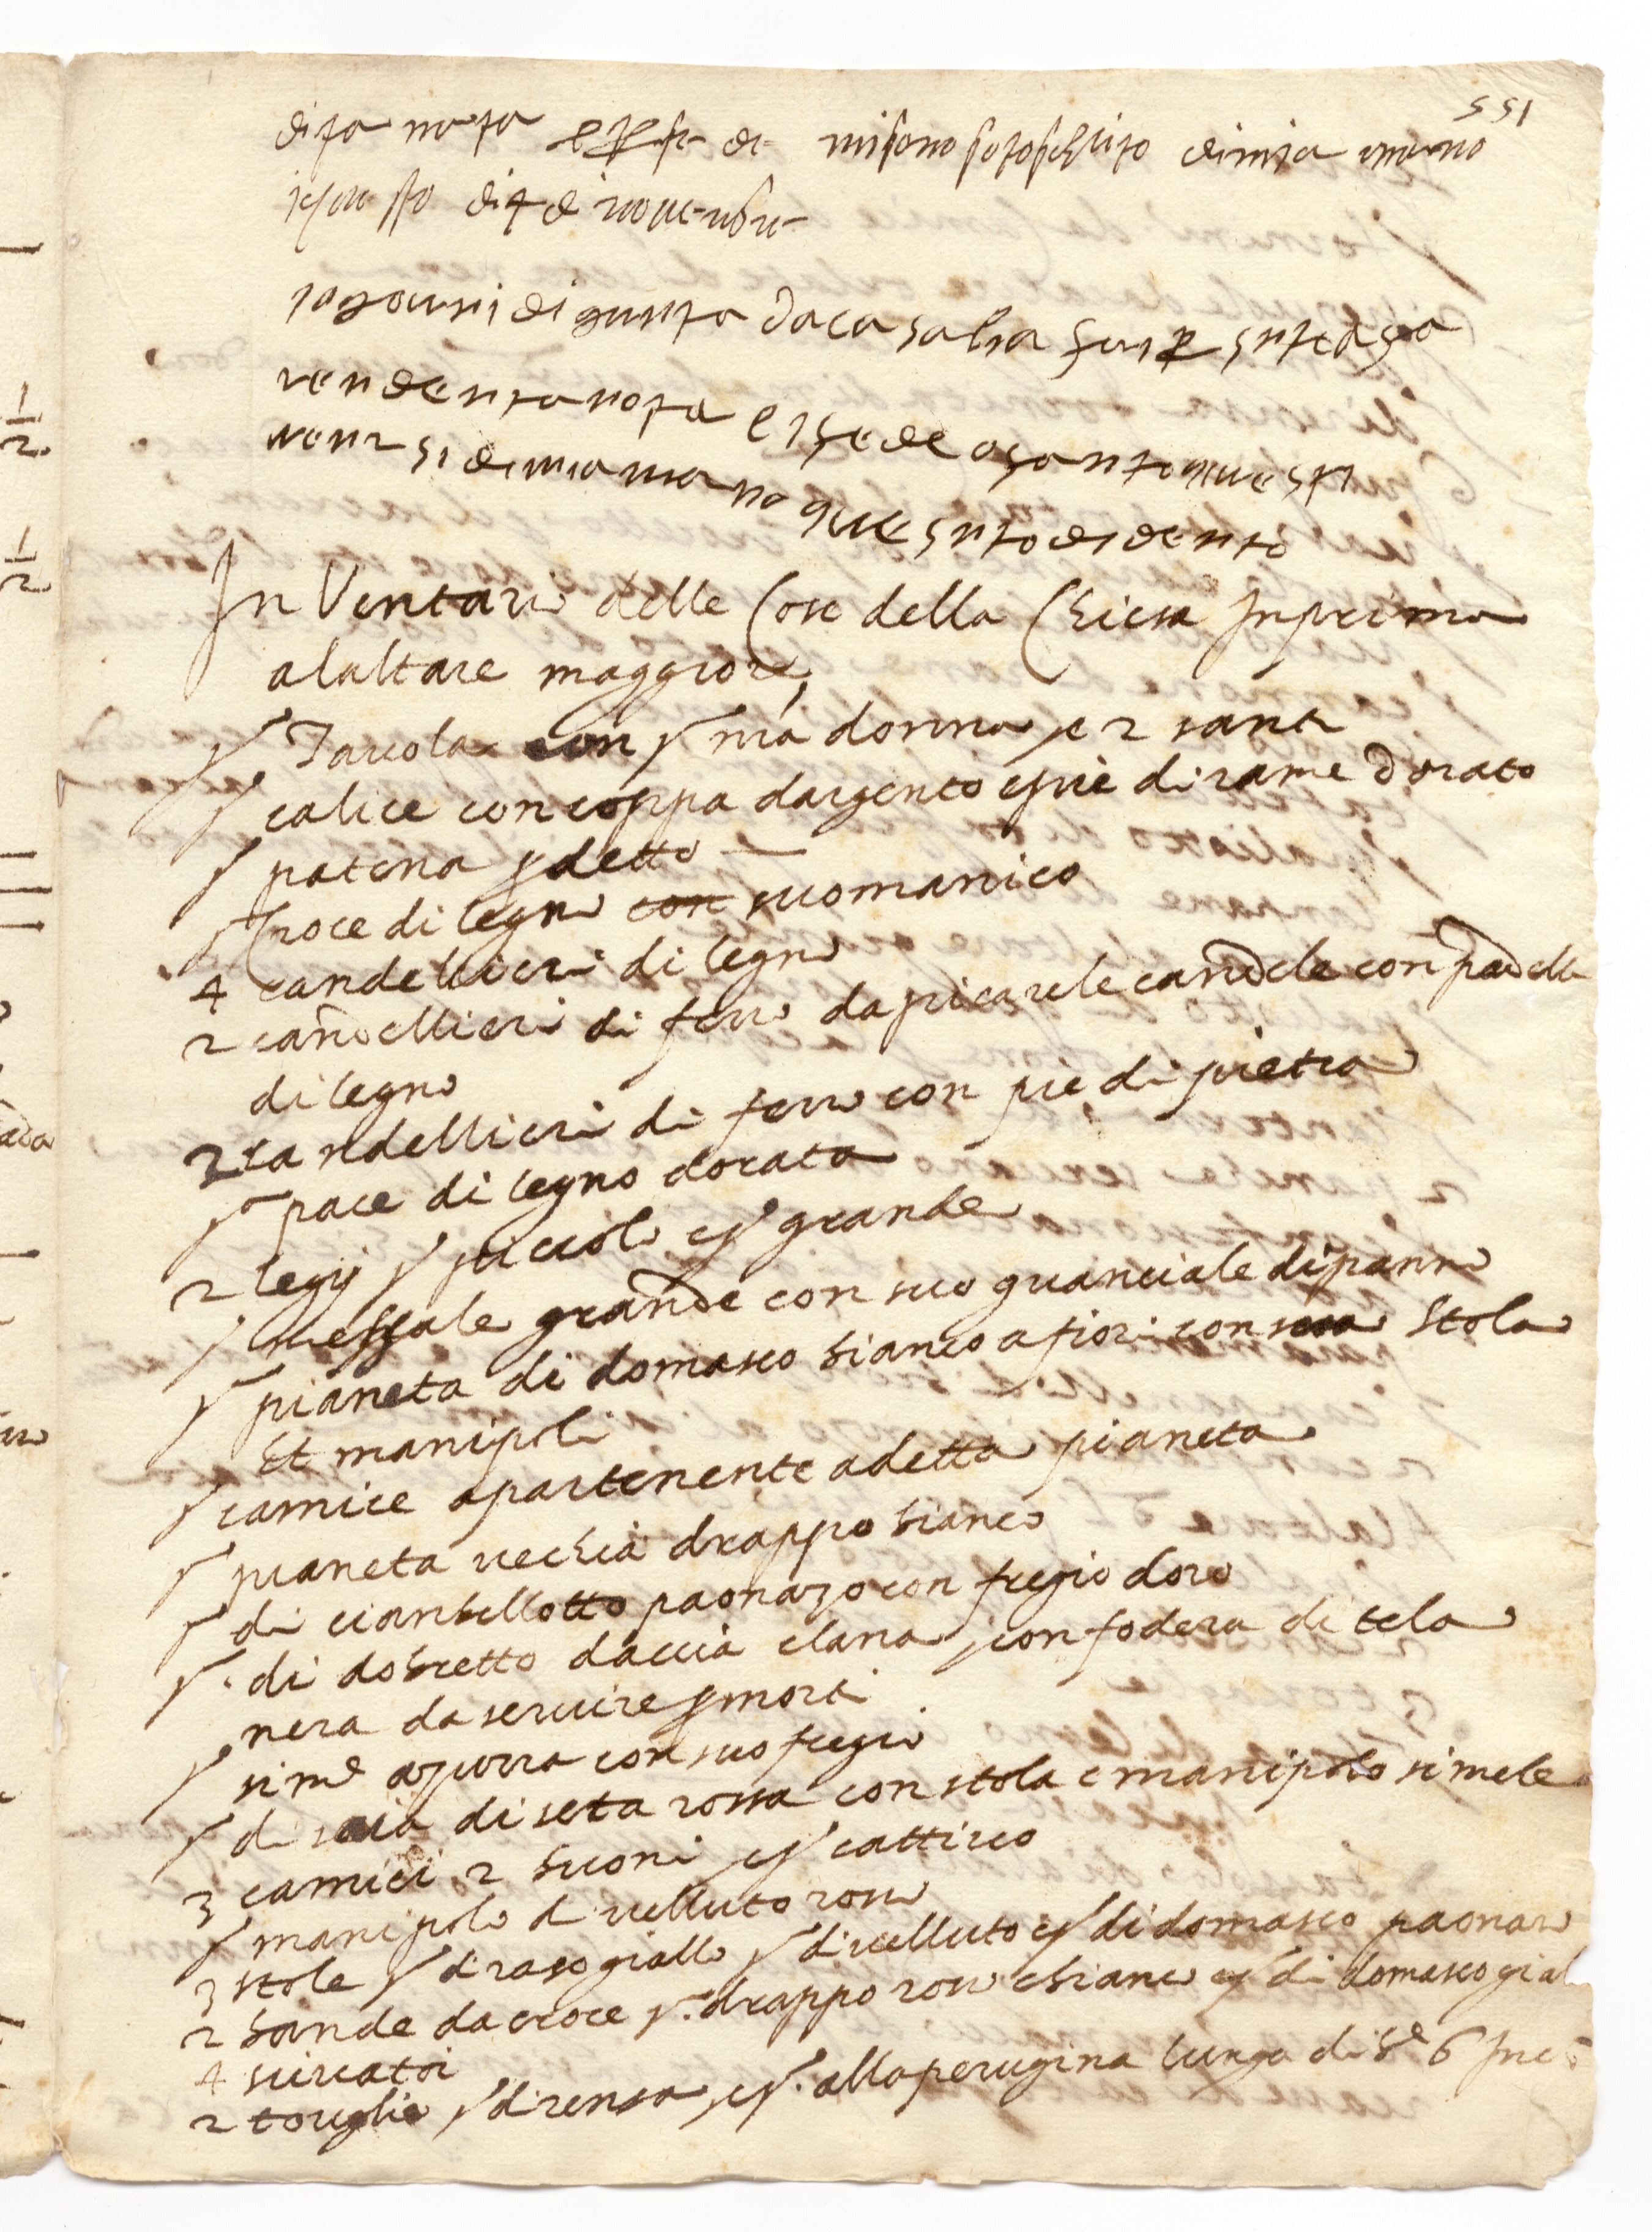 551
di mia mano
di 4 di novenbre
da casalia
rendenta nota e i fede
di mia mano
In Ventario delle Cose della Chiesa Inprima
alaltare maggiore,
1 Tavola con 1 mã donna e 2 santi
1 calice con coppa dargento e piè di rame dorato
1 patena detto
1 Croce di legno con suo manico
4 candellieri di legno
2 candellieri di ferro da picare le candele con padelle
di legno
2 candellieri di ferro con piè di pietra
1 pace di legno dorata
2 legij 1 piccolo e 1 grande
1 messale grande con suo guanciale di panno
1 pianeta di domasco bianco a fiori con sua Stola
Et manipoli
1 camice apartenente adetta pianeta
1 pianeta vechia drappo bianco
1 di cianbellotto paonazo con fregio doro
1. di dobretto daccia elana con fodera di tela
nera da servire morti
1 simᵉ azurra con suo fregio
1 di saia di seta rossa con stola e manipolo simele
3 camici 2 buoni e 1 cattivo
1 manipolo di velluto rosso
3 stole 1 di raso giallo 1 di velluto e 1 di domasco paonazo
2 bande da croce 1. drappo rosso e bianco e 1 di domasco gial
4 sciucatoi
2 tovaglie 1 di rensa e 1. alla perugina lunga di 6